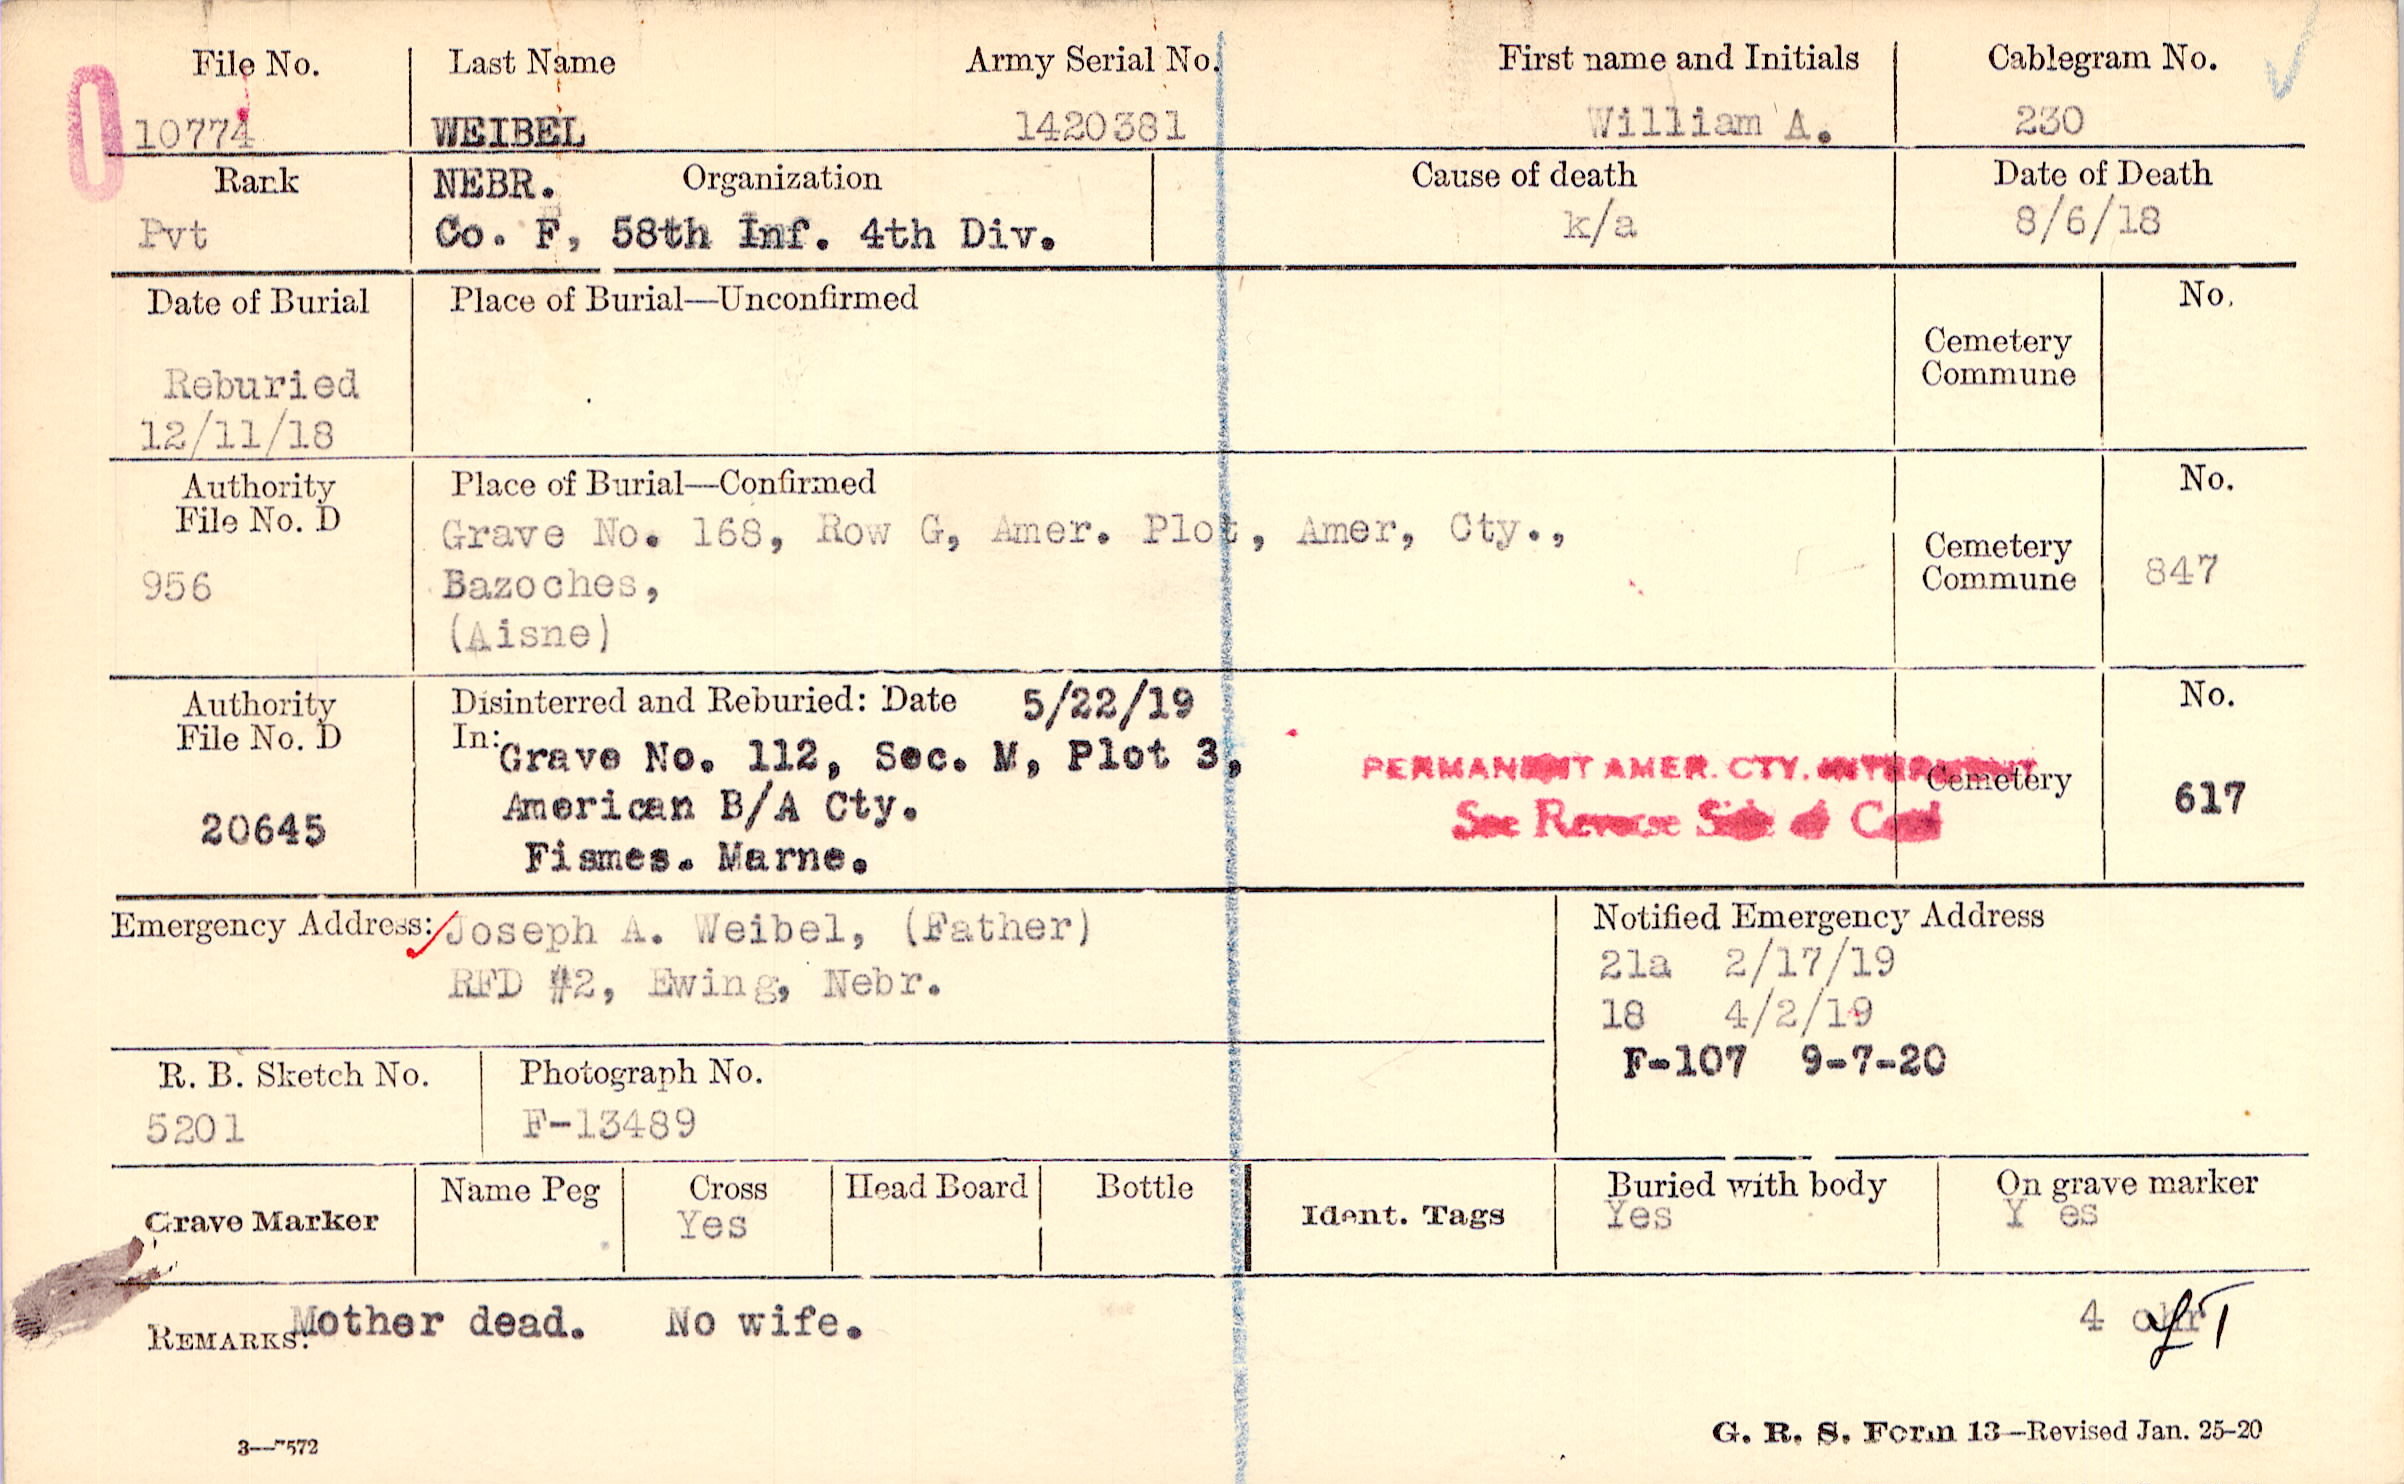 File No. Last Name Army Serial No. First name and Initials Cablegram No.
10774 WEIBEL 1420381 William A. 230
Rank NEBR. Organization Cause of death Date of Death
Pvt Co. F, 58th Inf. 4th Div. k/a 8/6/18
Date of Burial Place of Burial—Unconfirmed No.
Cemetery
Commune
Reburied
12/11/18
Authority Place of Burial—Confirmed No.
File No. D Grave No. 168, Row G, Amer. Plot, Amer, Cty.,
Cemetery
956 Bazoches, Commune 847
(Aisne)
Authority Disinterred and Reburied: Date 5/22/19 No.
File No. D In: Grave No. 112, Sec. M, Plot 3,
PERMANENT AMER. CTY. INTERMENT
Cemetery 617
20645 American B/A Cty.
See Reverse Side of Card
Fismes. Marne.
Emergency Address: Joseph A. Weibel, (Father) Notified Emergency Address
RFD #2, Ewing, Nebr. 21a 2/17/19
18 4/2/19
F-107 9-7-20
R. B. Sketch No. Photograph No.
5201 F-13489
Grave Marker Name Peg Cross Head Board Bottle Ident. Tags Buried with body On grave marker
Yes Yes Y es
REMARKS: Mother dead. No wife. 4
3—7572 G. R. S. Form 13—Revised Jan. 25-20